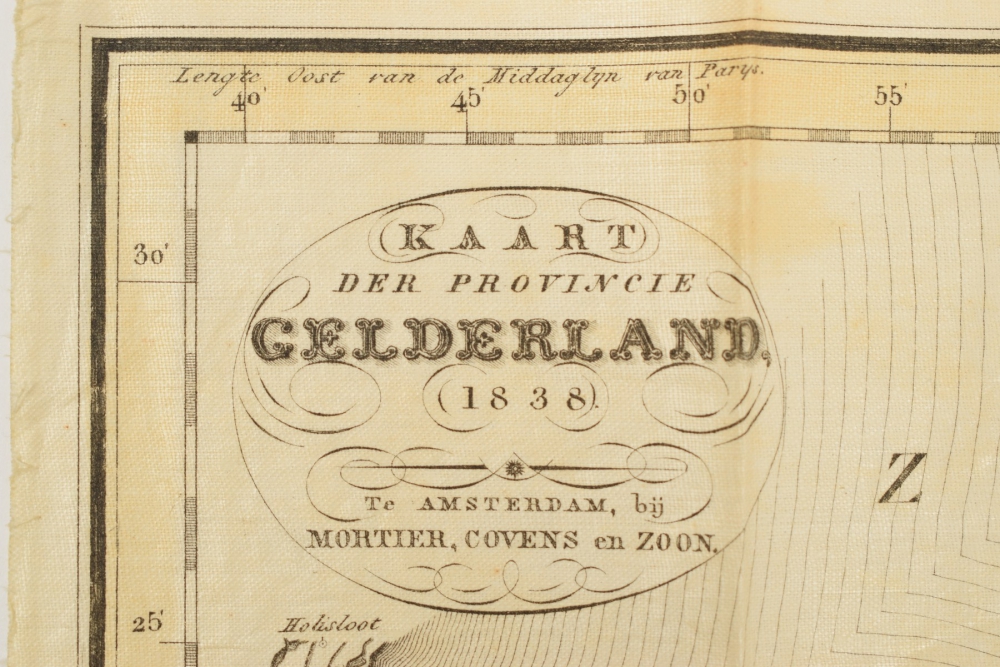 Lengte Oost van de Middaglyn van Parys.
40' 45' 50' 55'
30'
KAART
DER PROVINCIE
GELDERLAND,
(1838).
Z
Te AMSTERDAM, bij
MORTIER, COVENS en ZOON.
25'
Holisloot